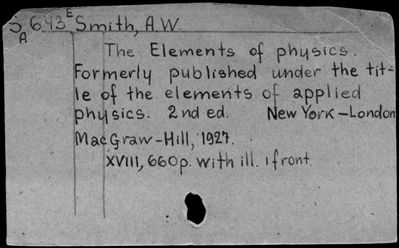 5A 643E Smith, A.W.
The Elements of physics.
Formerly published under the tit-
le of the elements of applied
physics. 2nd ed. New York-London
MacGraw-Hill, 1927.
XVIII, 660p. with ill. 1 front.